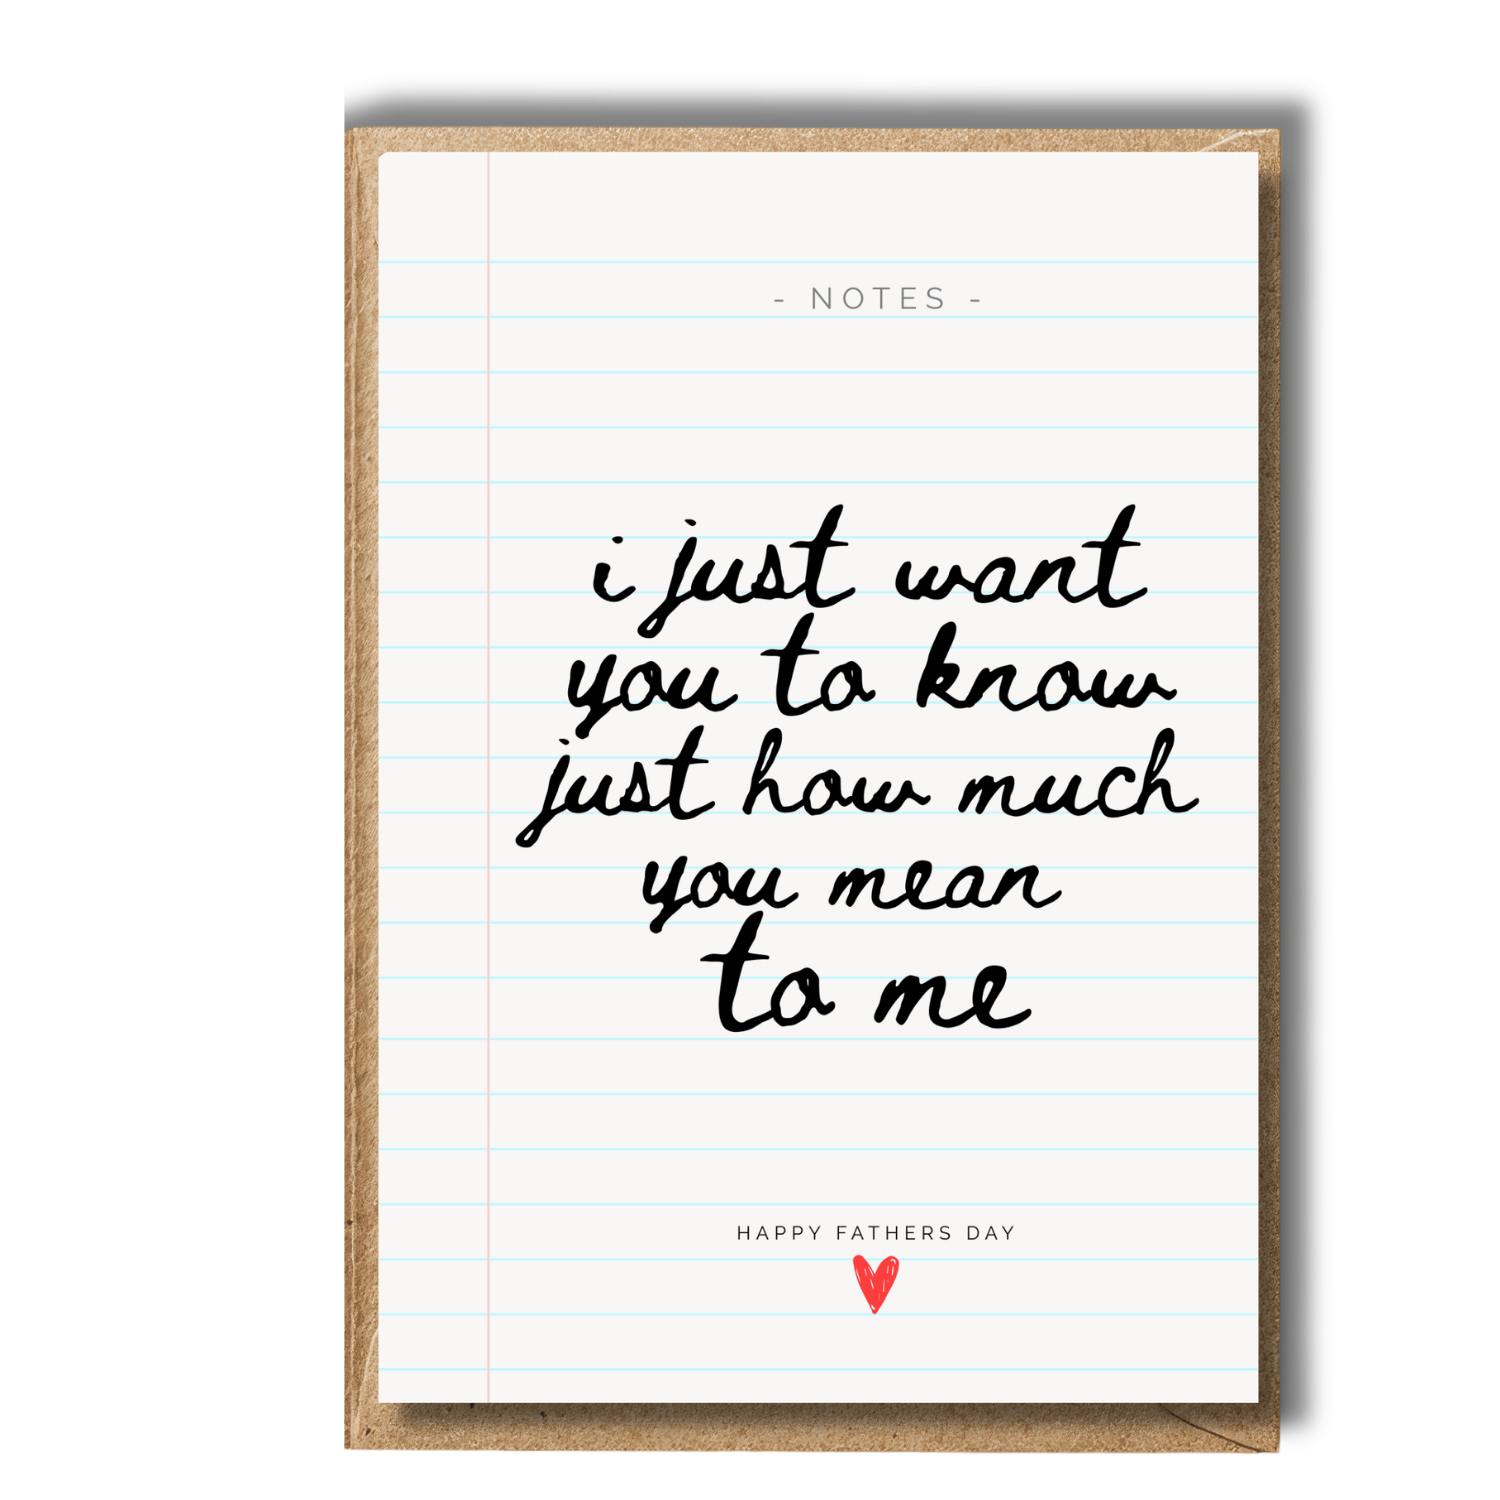 - NOTES -
i just want
you to know
just how much
you mean
to me
HAPPY FATHERS DAY